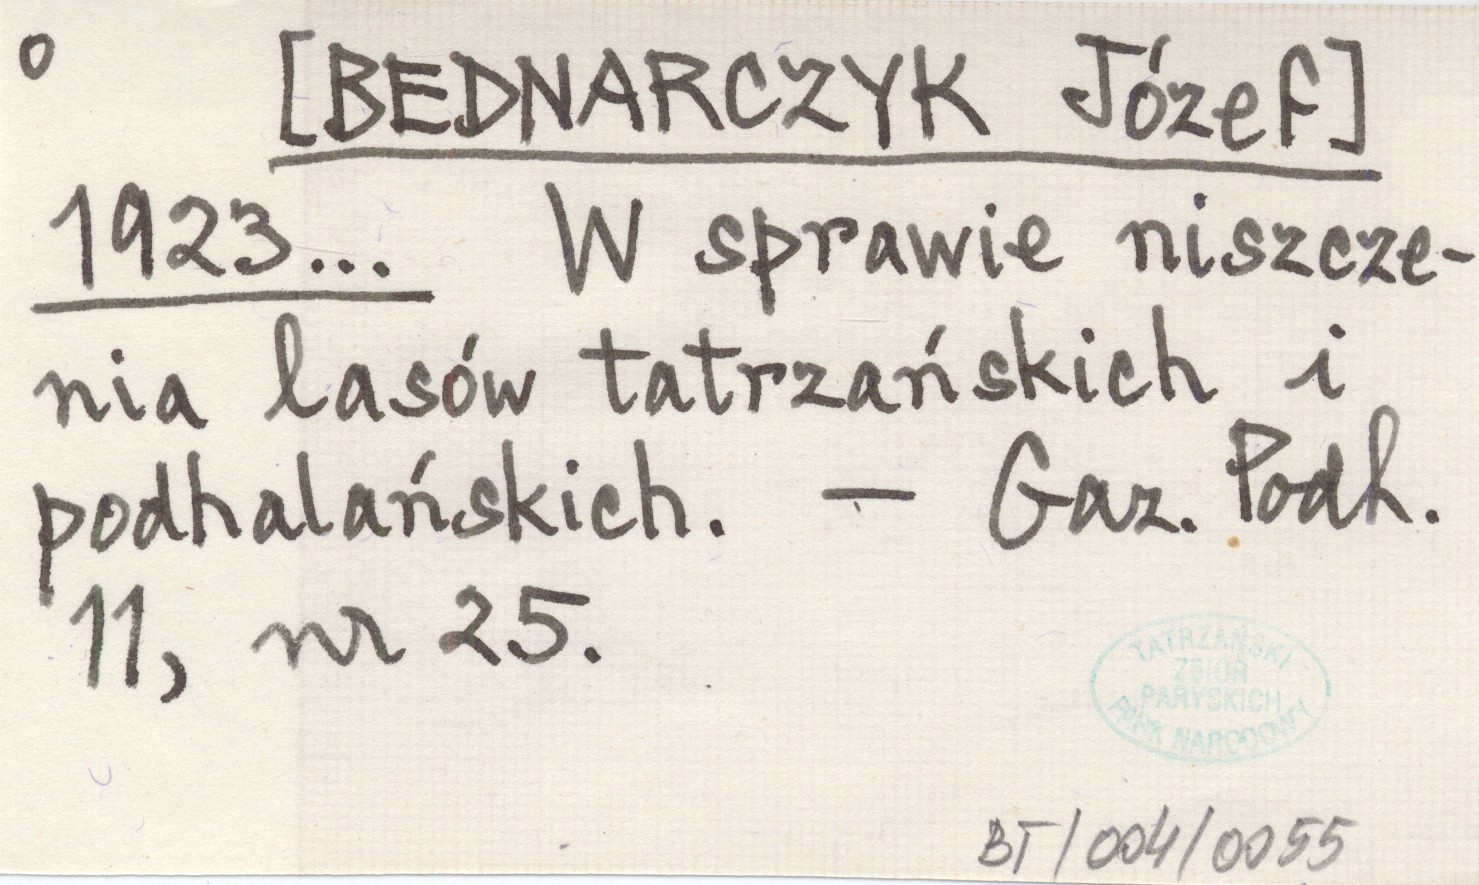 o [BEDNARCZYK Józef]
1923... W sprawie niszcze-
nia lasów tatrzańskich i
podhalańskich. — Gaz. Podh.
11, nr 25.
TATRZAŃSKI
ZBIÓR
PARYSKICH
PARK NARODOWY
BT/004/0055